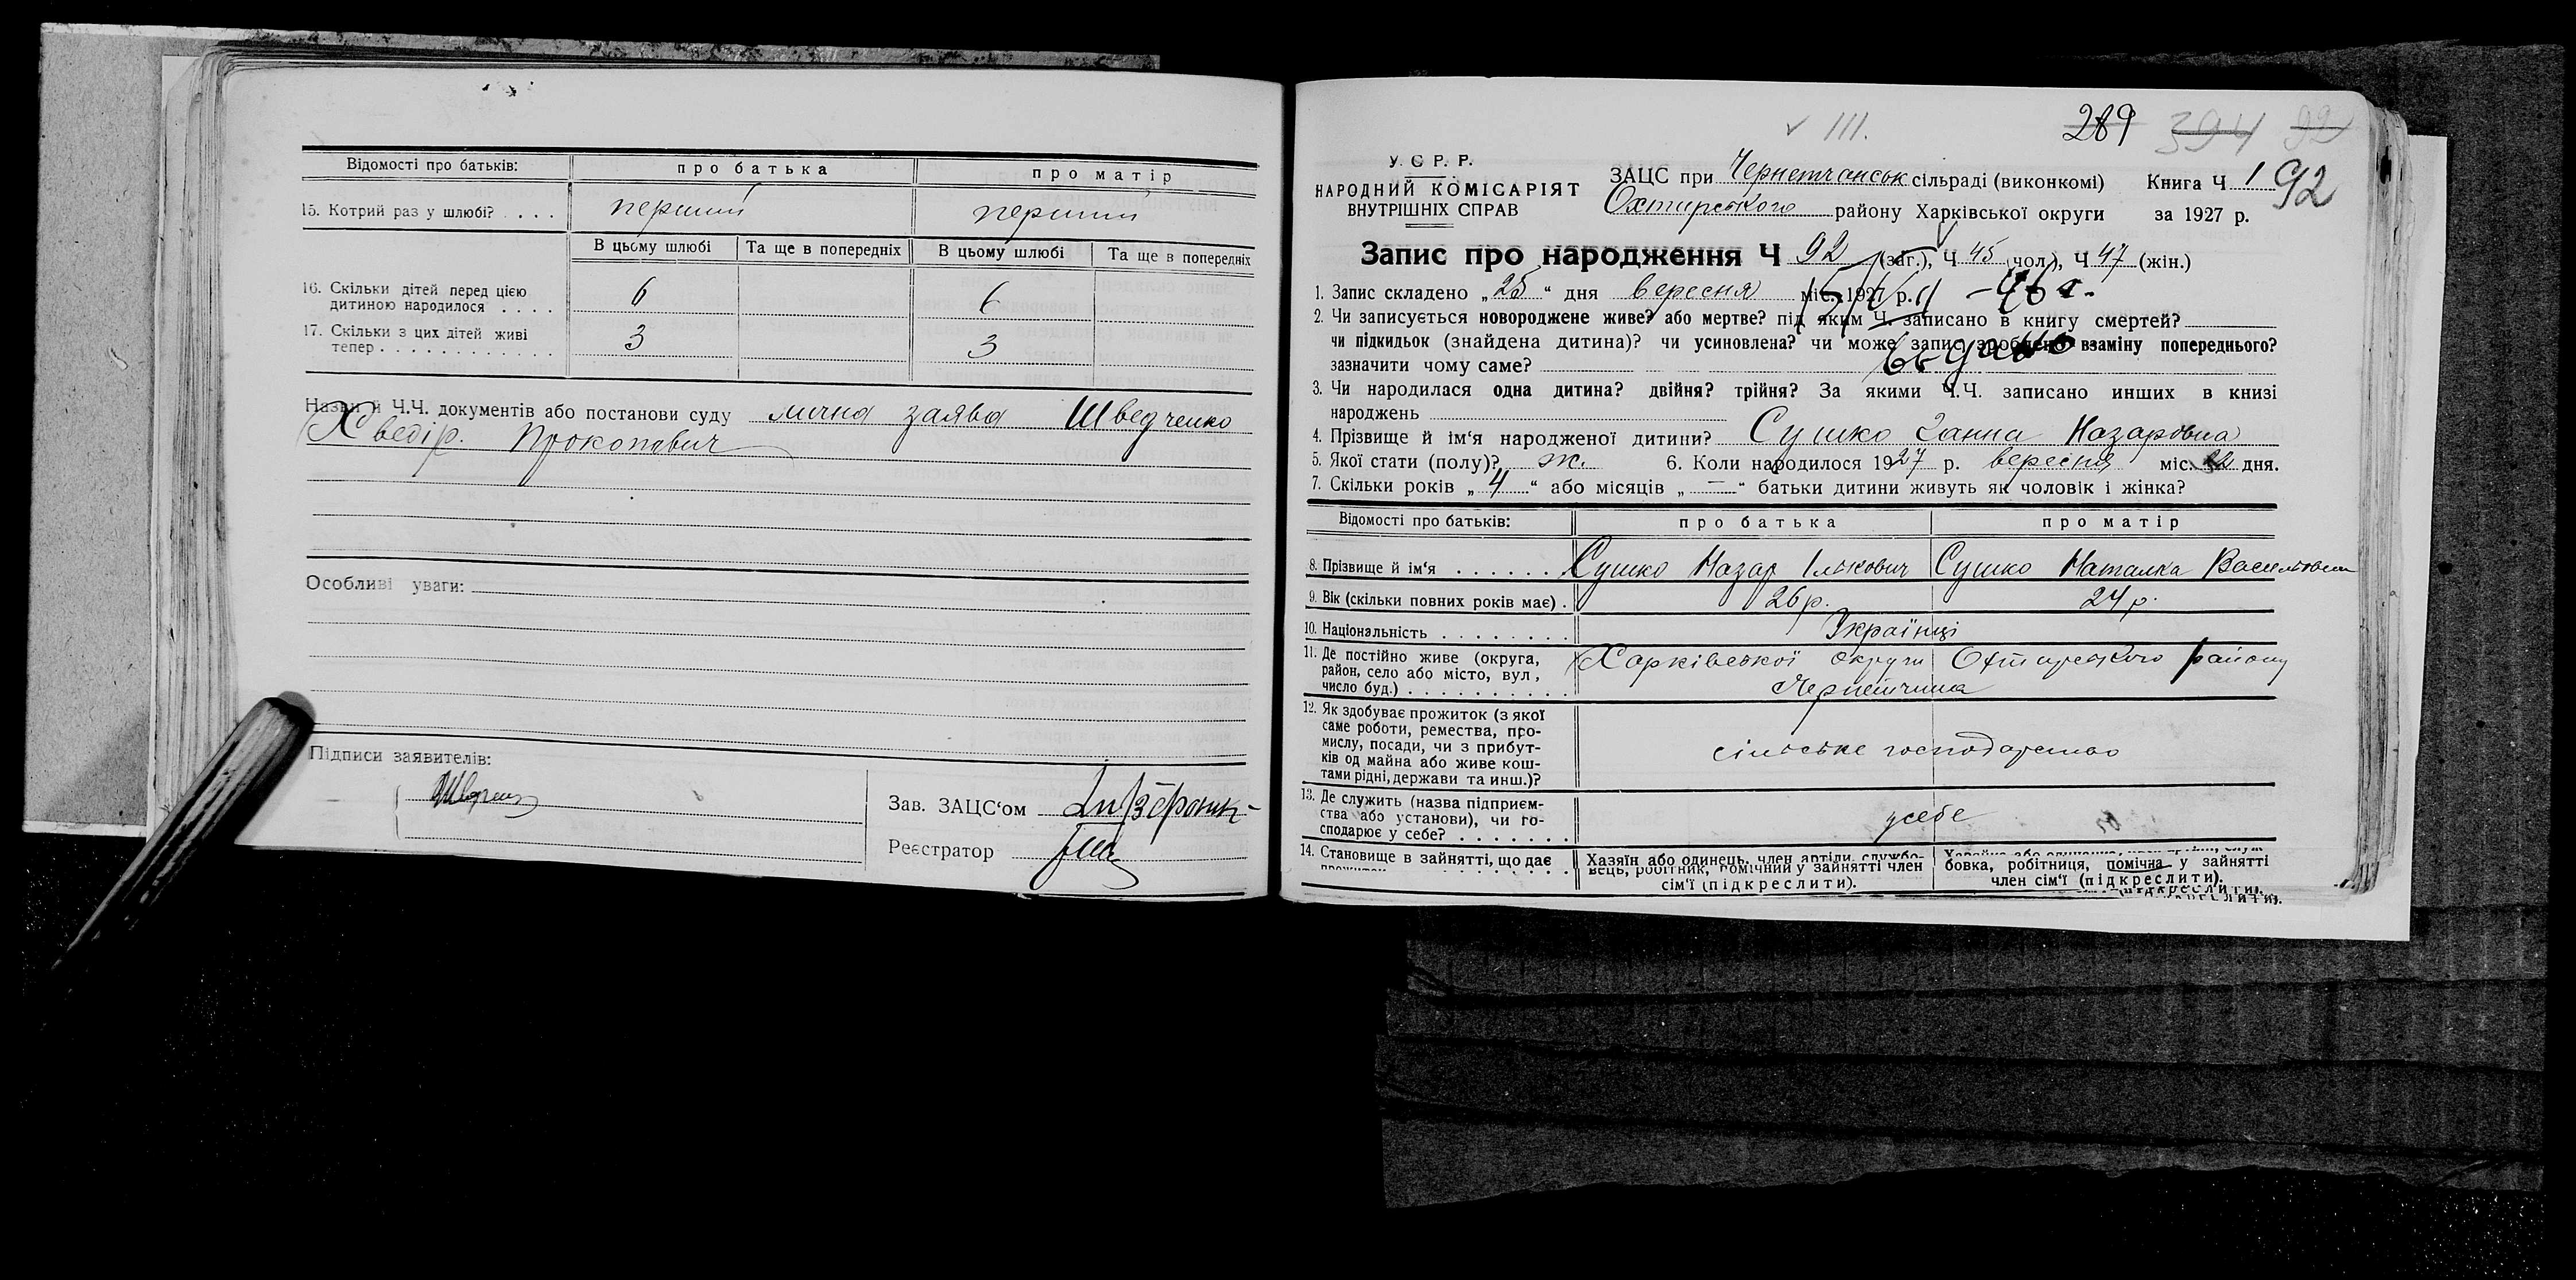 Відомості про батьків: про батька про матір
15. Котрий раз у шлюбі? . . . . перший перший
В цьому шлюбі Та ще в попередніх В цьому шлюбі Та ще в попередніх
16. Скільки дітей перед цією
дитиною народилося . . . . 6 6
17. Скільки з цих дітей живі
тепер . . . . . . . . . . . . . 3 3
Назви й Ч.Ч. документів або постанови суду лична заява Шведченко
Хведір. Прокопович
Особливі уваги:
Підписи заявителів:
Зав. ЗАЦС‘ом
Реєстратор
✓ III.
289 394 92
У. С Р. Р.
НАРОДНИЙ КОМІСАРІЯТ
ВНУТРІШНІХ СПРАВ
ЗАЦС при Чернетчанськ сільраді (виконкомі) Книга Ч 1 92
Охтирського району Харківської округи за 1927 р.
Запис про народження Ч 92 (заг.), Ч 45 (чол.), Ч 47 (жін.)
1. Запис складено „25“ дня вересня міс. 1927 р.
2. Чи записується новороджене живе? або мертве? під яким Ч. записано в книгу смертей?
чи підкидьок (знайдена дитина)? чи усиновлена? чи може запис зроблено взаміну попереднього?
зазначити чому саме?
3. Чи народилася одна дитина? двійня? трійня? За якими Ч.Ч. записано инших в книзі
народжень
4. Прізвище й ім‘я народженої дитини? Сушко Ганна Назаровна
5. Якої стати (полу)? ж. 6. Коли народилося 1927 р. вересня міс. 22 дня.
7. Скільки років „4“ або місяців „—“ батьки дитини живуть як чоловік і жінка?
Відомості про батьків: про батька про матір
8. Прізвище й ім‘я . . . . . . Сушко Назар Ількович Сушко Наталка Васильовна
9. Вік (скільки повних років має) . 26 р. 24 р.
10. Національність . . . . . . . . Українці
11. Де постійно живе (округа, Харківської округи Охтирського району
район, село або місто, вул,
число буд.) . . . . . . . . . . Чернетчина
12. Як здобуває прожиток (з якої
саме роботи, ремества, про-
мислу, посади, чи з прибут- сільське господарство
ків од майна або живе кош-
тами рідні, держави та инш.)?
13. Де служить (назва підприєм-
ства або установи), чи го- усебе
сподарює у себе? . . . . . . .
14. Становище в зайнятті, що дає Хазяїн або одинець, член артіли, службо-
вець, робітник, помічний у зайнятті член бовка, робітниця, помічна у зайнятті
сім‘ї (підкреслити). член сім‘ї (підкреслити).